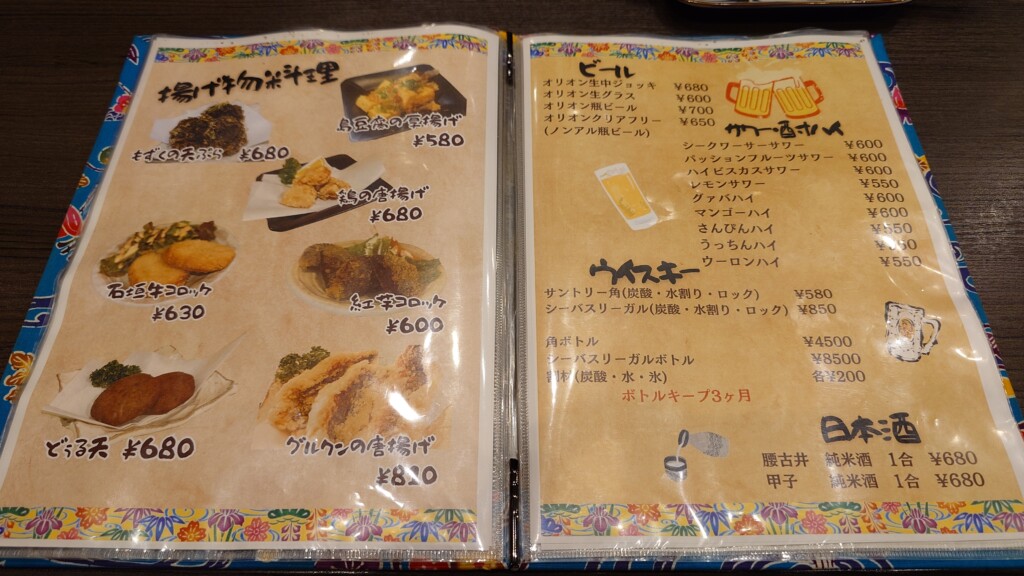 揚げ物料理
島豆腐の厚揚げ
¥580
もずくの天ぷら ¥680
鶏の唐揚げ
¥680
石垣牛コロッケ
¥630
紅芋コロッケ
¥600
どぅる天 ¥680
グルクンの唐揚げ
¥820
ビール
オリオン生中ジョッキ ¥680
オリオン生グラス ¥600
オリオン瓶ビール ¥700
オリオンクリアフリー ¥650
(ノンアル瓶ビール)
サワー・酎ハイ
シークワーサーサワー ¥600
パッションフルーツサワー ¥600
ハイビスカスサワー ¥600
レモンサワー ¥550
グァバハイ ¥600
マンゴーハイ ¥600
さんぴんハイ ¥550
うっちんハイ
ウーロンハイ ¥550
ウイスキー
サントリー角(炭酸・水割り・ロック) ¥580
シーバスリーガル(炭酸・水割り・ロック) ¥850
角ボトル ¥4500
シーバスリーガルボトル ¥8500
割材(炭酸・水・氷) 各¥200
ボトルキープ3ヶ月
日本酒
腰古井 純米酒 1合 ¥680
甲子 純米酒 1合 ¥680